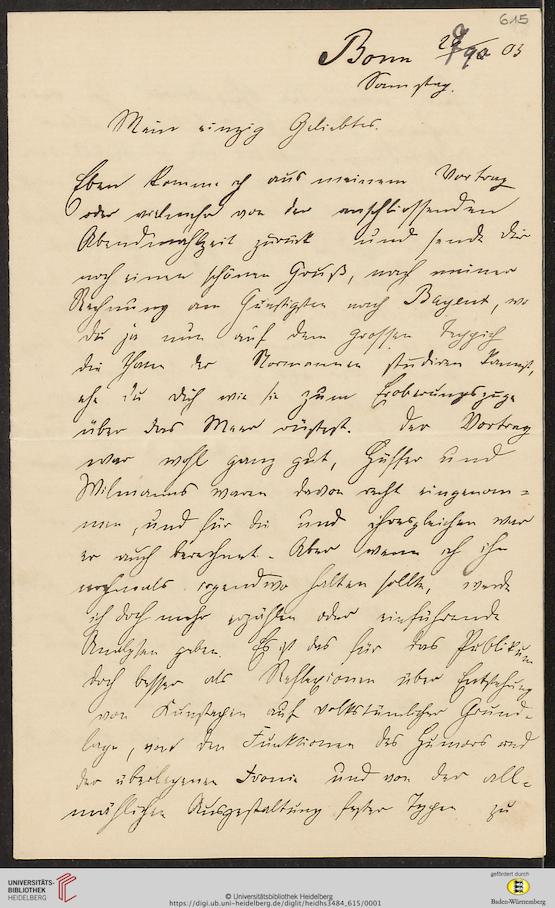 615
Bonn 03
Samstag.
Mein einzig Geliebtes.
Eben komme ich aus meinem Vortrag
oder vielmehr von der anschliessenden
Abendmahlzeit zurück und sende Dir
noch einen schönen Gruß, nach meiner
Rechnung am günstigsten nach Bayeux, wo
du ja nun auf dem grossen Teppich
die Thaten der Normannen studieren kannst,
ehe du dich wie sie zum Eroberungszuge
über das Meer rüstest. Der Vortrag
war wohl ganz gut, Hüffer und
Wilmanns waren davon recht eingenom=
men, und für die und ihresgleichen war
er auch berechnet. Aber wenn ich ihn
nochmals irgendwo halten sollte, werde
ich doch mehr erzählen oder einführende
Analysen geben. Es ist das für das Publikum
doch besser als Reflexionen über Entstehung
von auf volkstümlicher Grund=
lage, von den Funktionen des Humors und
der überlegenen Ironie und von der all=
mählichen Ausgestaltung fester Typen zu
UNIVERSITÄTS-
BIBLIOTHEK
HEIDELBERG
© Universitätsbibliothek Heidelberg
https://digi.ub.uni-heidelberg.de/diglit/heidhs3484_615/0001
gefördert durch
Baden-Württemberg